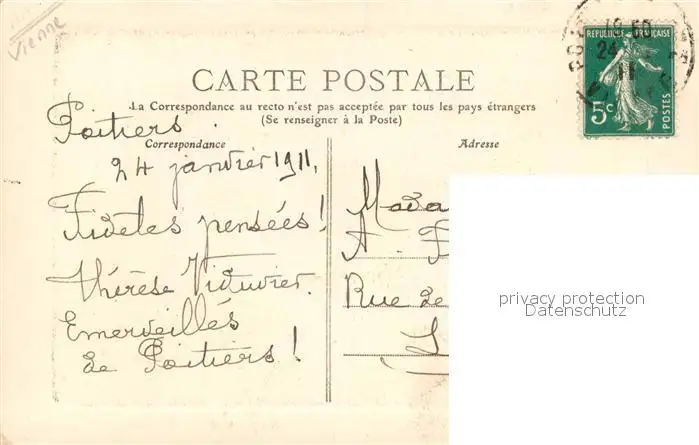 Vienne
CARTE POSTALE
La Correspondance au recto n'est pas acceptée par tous les pays étrangers
(Se renseigner à la Poste)
Correspondance
Adresse
RÉPUBLIQUE FRANÇAISE
5c
POSTES
24
11
Poitiers.
24 janvier 1911.
Fidèles pensées!
Thérèse
Emerveillés
de Poitiers!
Mada
A.
Rue de
privacy protection
Datenschutz